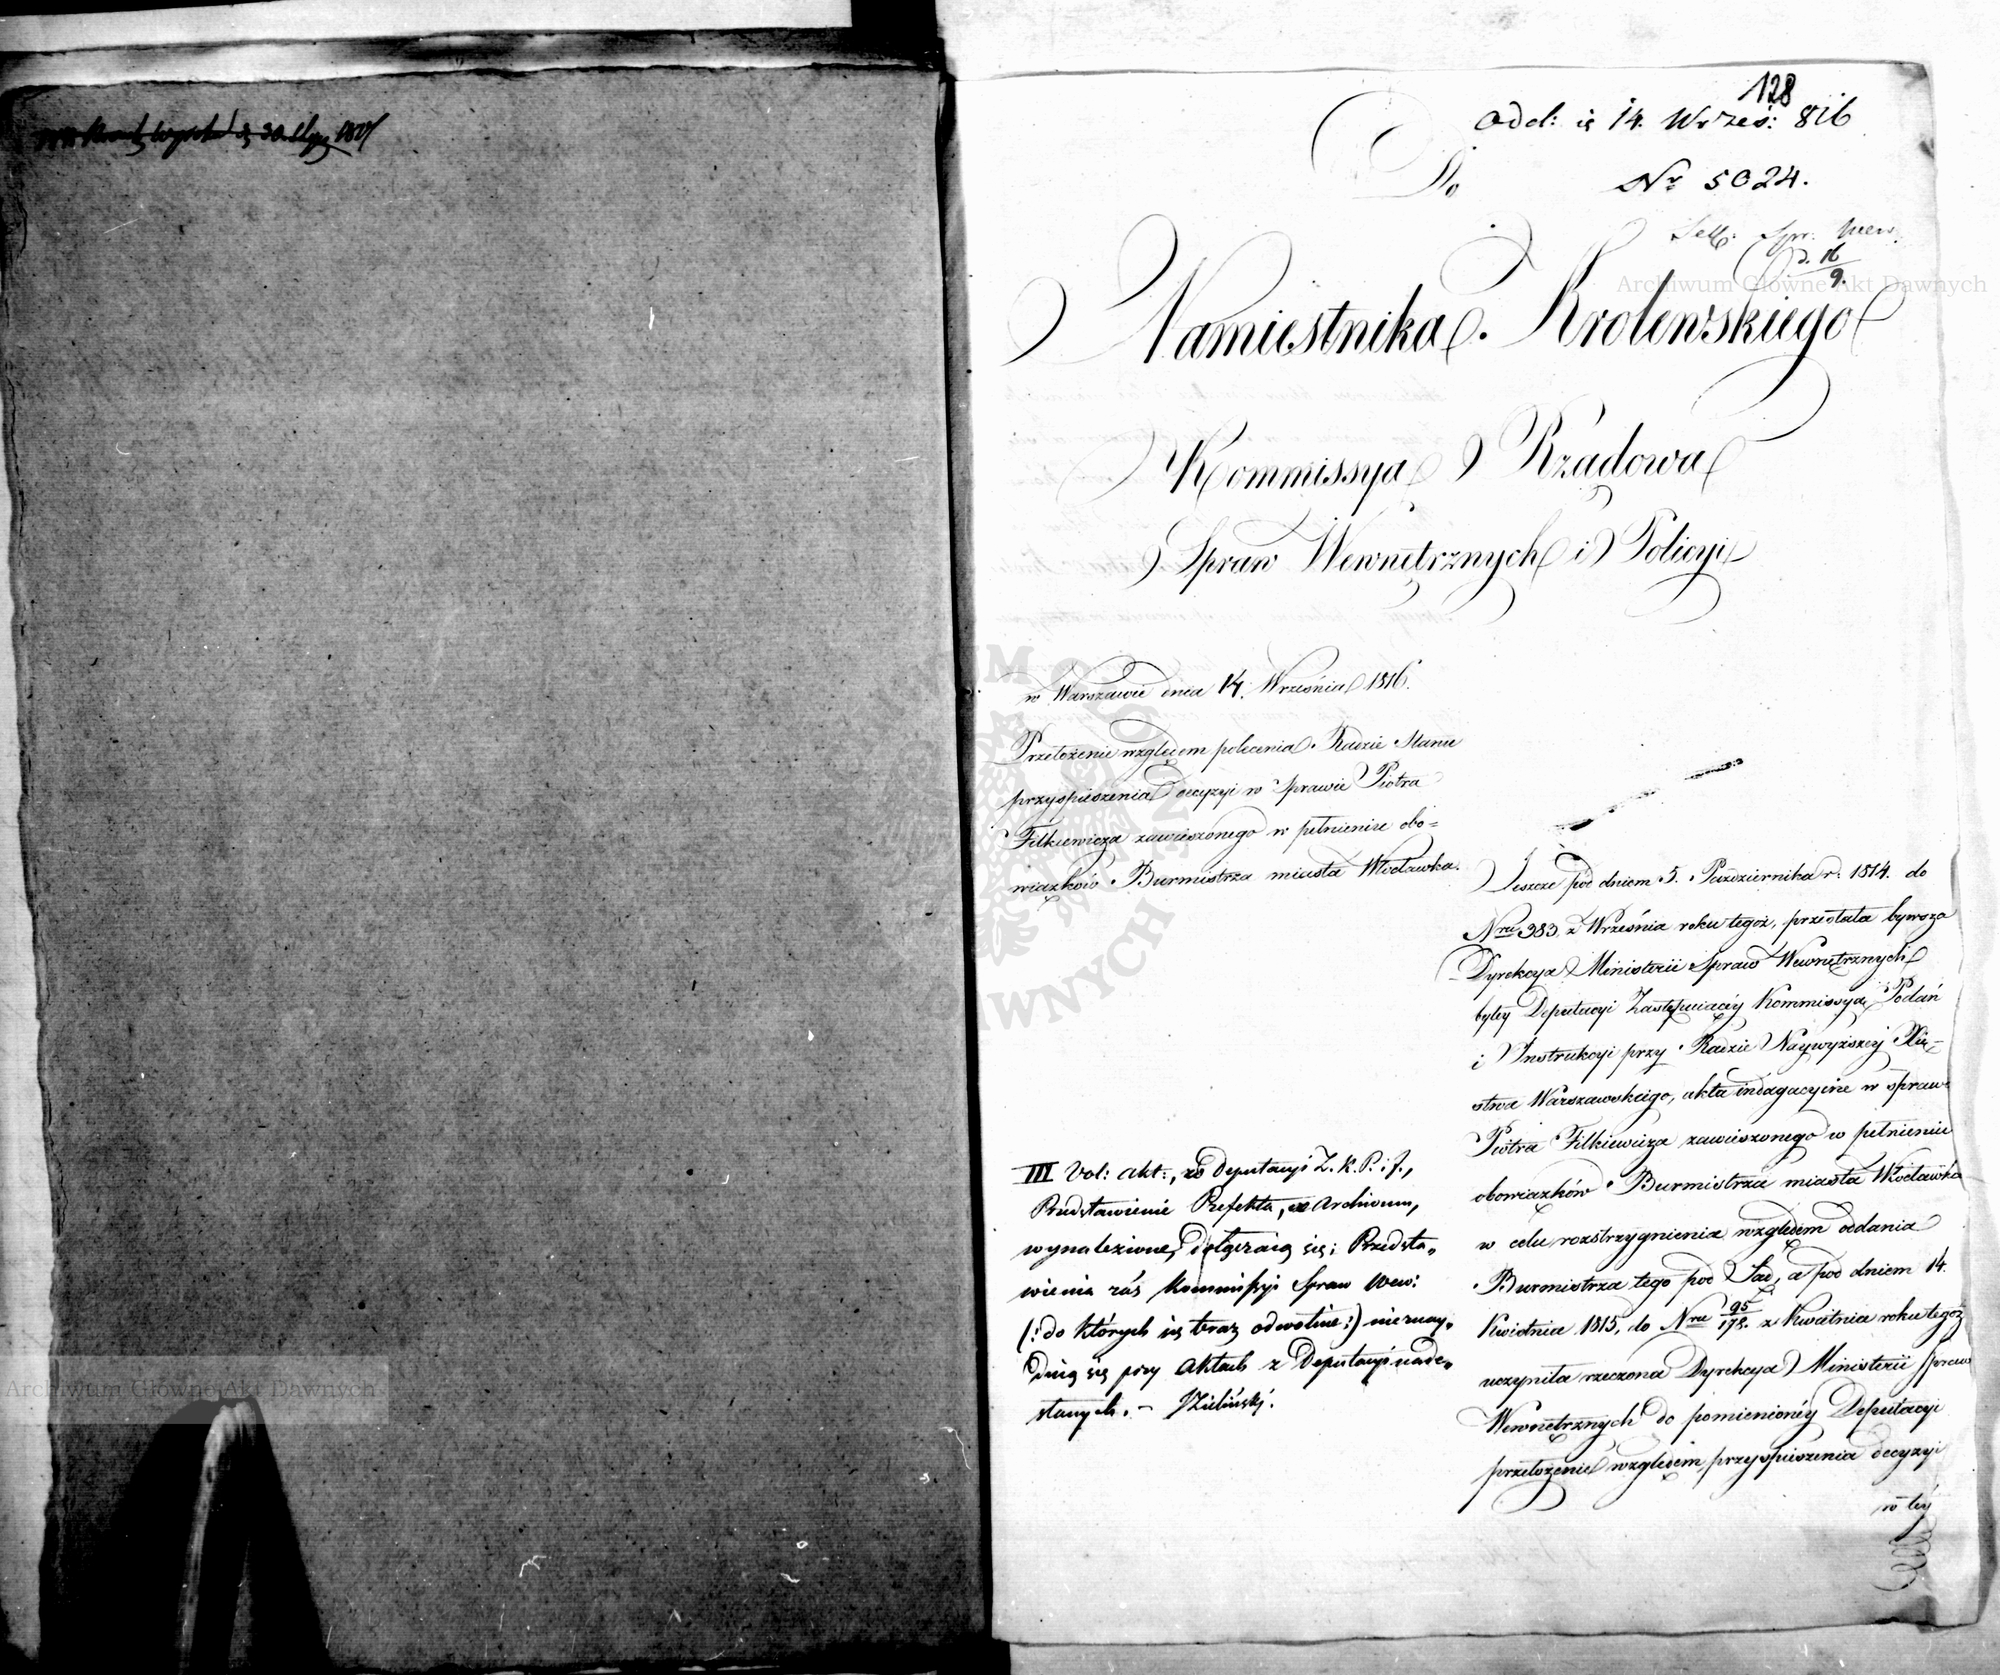 128
Odd: is 14. Wrześ: 816
Do
Nr 5024.
Sekr: Spr: Wew:
d. 16/9
Namiestnika Krolewskiego
Kommissya Rządowa
Spraw Wewnętrznych i Policyi
w Warszawie dnia 14. Września 1816.
Przełożenie względem polecenia Radzie Stanu
przyspieszenia decyzyi w Sprawie Piotra
Filkiewicza zawieszonego w pełnieniu obo=
wiązków Burmistrza miasta Włocławka.
Jeszcze pod dniem 5. Października r: 1814. do
Nru 383. z Września roku tegoż, przesłała bywsza
Dyrekcya Ministerii Spraw Wewnętrznych
byłey Deputacyi Zastępuiącéy Kommissyą Podań
i Instrukcyi przy Radzie Naywyższéy Xię=
stwa Warszawskiego, akta indagacyine w sprawie
Piotra Filkiewicza zawieszonego w pełnieniu
obowiązków Burmistrza miasta Włocławka
w celu rozstrzygnienia względem oddania
Burmistrza tego pod Sąd, a pod dniem 14.
Kwietnia 1815, do Nru 95/178. z Kwietnia roku tegoż
uczyniła rzeczona Dyrekcya Ministerii Spraw
Wewnętrznych do pomienionéy Deputacyi
przełożenie względem przyspieszenia decyzyi
w téy
III Vol: akt:, zo Deputacyi Z. K. P. i J.,
Przedstawienie Prefekta, w Archivum,
wynalezione, dołączaią się; Przedsta=
wienia zaś Kommissyi Spraw Wew:
(: do których się teraz odwołuie :) nieznay=
duią się przy Aktach z Deputacyi nade=
słanych. – Zieliński.
Archiwum Główne Akt Dawnych
Archiwum Główne Akt Dawnych